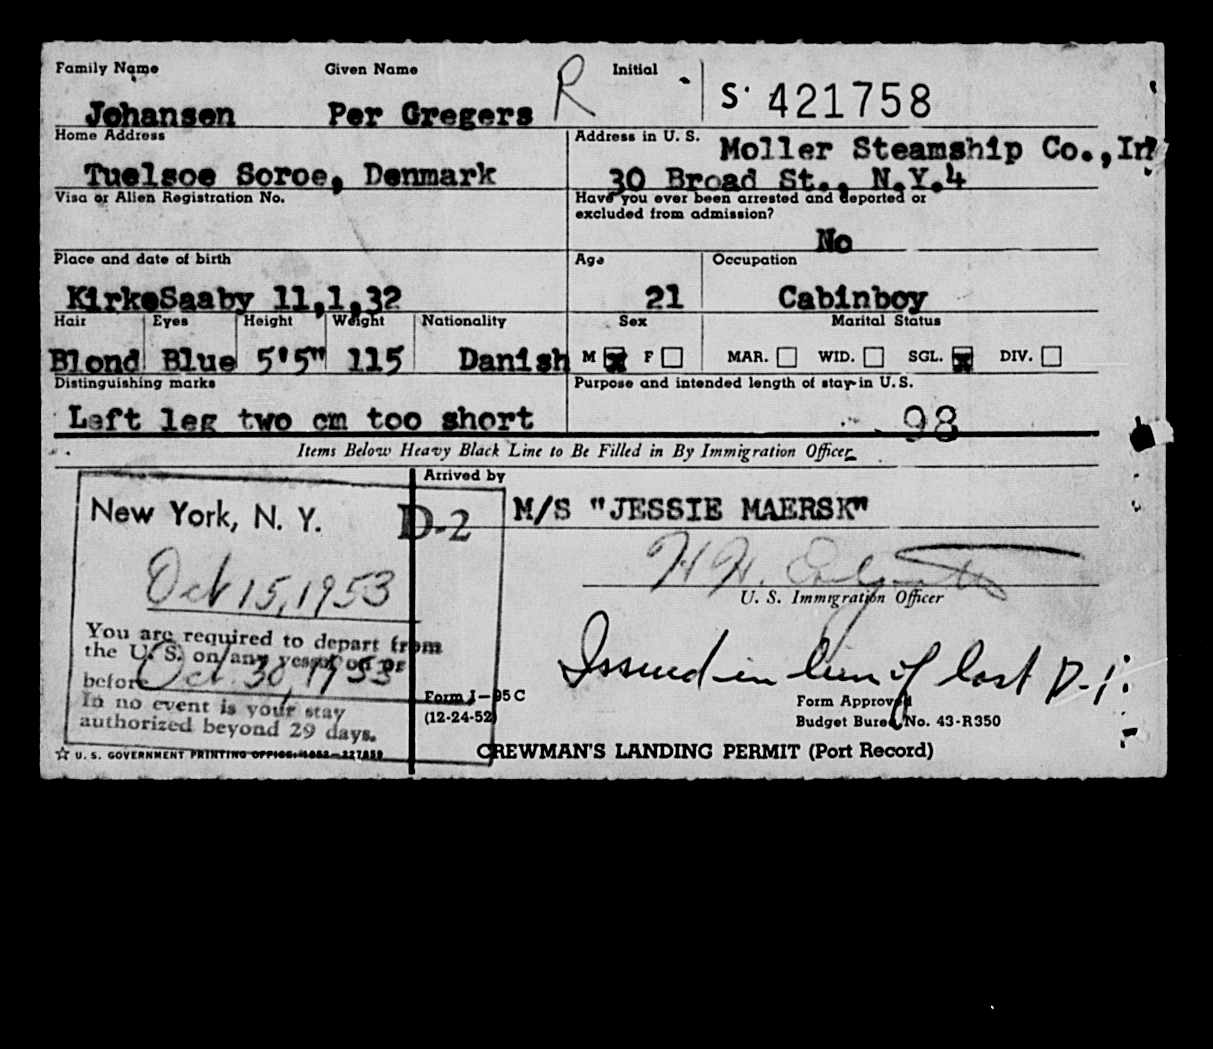 Family Name Given Name R Initial S 421758
Johansen Per Gregers
Home Address Address in U. S. Moller Steamship Co., In
Tuelsoe Soroe, Denmark 30 Broad St., N.Y.4
Visa or Alien Registration No. Have you ever been arrested and deported or
excluded from admission?
No
Place and date of birth Age Occupation
KirkeSaaby 11,1,32 21 Cabinboy
Hair Eyes Height Weight Nationality Sex Marital Status
Blond Blue 5'5" 115 Danish M F MAR. WID. SGL. DIV.
Distinguishing marks Purpose and intended length of stay in U. S.
Left leg two cm too short 98
Items Below Heavy Black Line to Be Filled in By Immigration Officer
Arrived by
New York, N. Y. D-2 M/S "JESSIE MAERSK"
Oct 15, 1953 H. H.
U. S. Immigration Officer
You are required to depart from
the U. S. on any vessel on or
before Oct. 30, 1953
In no event is your stay
authorized beyond 29 days.
Issued in lieu of last D-1.
Form I-95 C
(12-24-52)
Form Approved
Budget Bureau No. 43-R350
☆ U. S. GOVERNMENT PRINTING OFFICE:
CREWMAN'S LANDING PERMIT (Port Record)